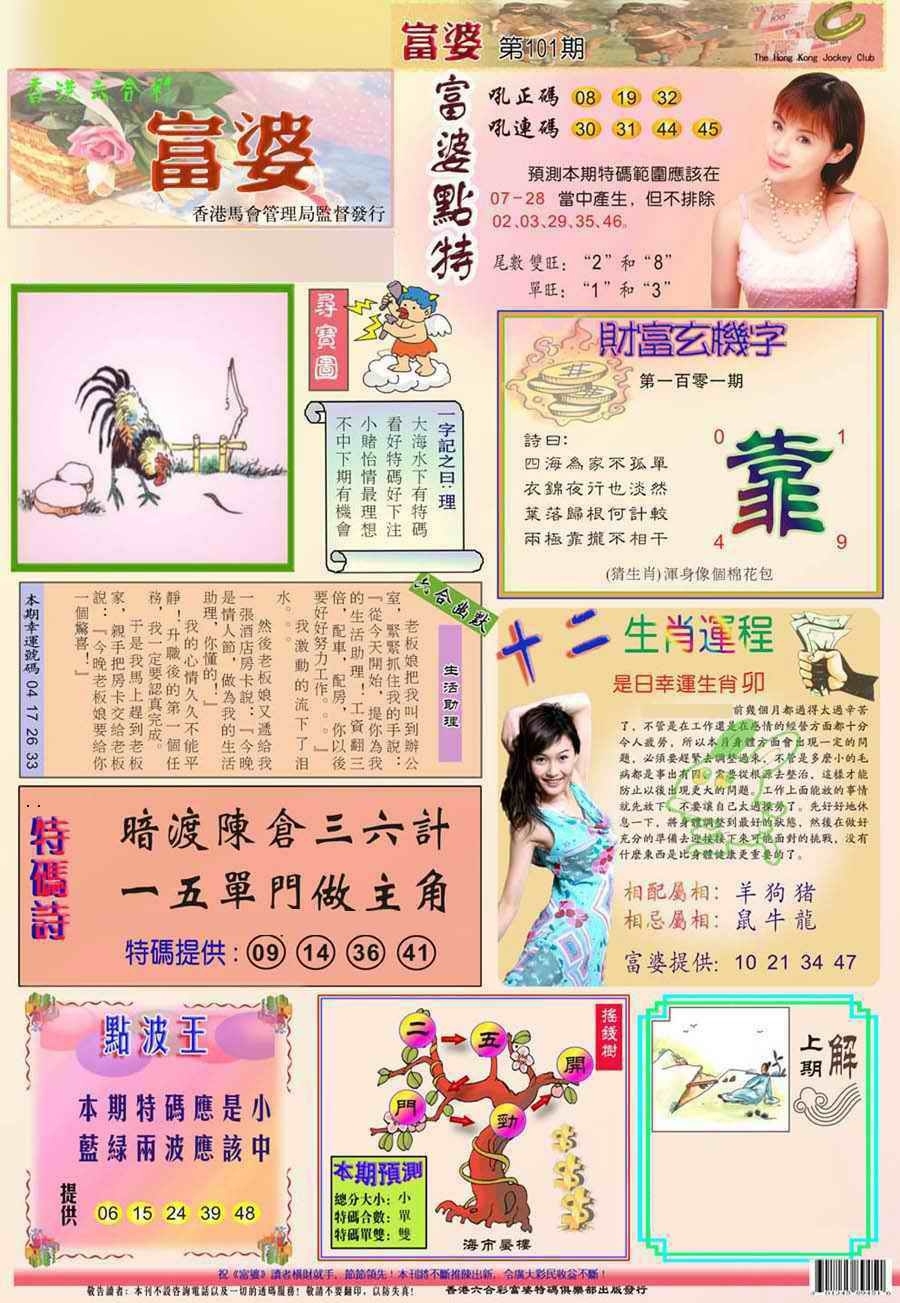 富婆 第101期
The Hong Kong Jockey Club
香港六合彩
富婆
香港馬會管理局監督發行
富婆點特
吼正碼 08 19 32
吼連碼 30 31 44 45
預測本期特碼範圍應該在
07-28 當中產生，但不排除
02、03、29、35、46。
尾數雙旺：“2”和“8”
單旺：“1”和“3”
尋寶圖
一字記之曰：理
大海水下有特碼
看好特碼好下注
小賭怡情最理想
不中下期有機會
財富玄機字
第一百零一期
詩曰：
四海為家不孤單
衣錦夜行也淡然
葉落歸根何計較
兩極靠攏不相干
0 1
靠
4 9
(猜生肖)渾身像個棉花包
六合幽默
生活助理
老板娘把我叫到辦公
室，緊緊抓住我的手說：
『從今天開始，提你為我
的生活助理！工資翻三
倍，配車，配房，你以後
要好好努力工作。。。』
我激動的流下了泪
水。。
然後老板娘又遞給我
一張酒店房卡說：『今晚
是情人節，做為我的生活
助理，你懂的！』
我的心情久久不能平
靜！升職後的第一個任
務，我一定要認真完成。
於是我馬上趕到老板
家，親手把房卡交給老板
說：『今晚老板娘要給你
一個驚喜！』
本期幸運號碼 04 17 26 33
十二生肖運程
是日幸運生肖 卯
前幾個月都過得太過辛苦
了，不管是在工作還是在感情的經營方面都十分
令人疲勞，所以本月身體方面會出現一定的問
題，必須要趕緊去調整過來，不管是多麽小的毛
病都是事出有因，需要從根源去整治，這樣才能
防止以後出現更大的問題。工作上面能放的事情
就先放下，不要讓自己太過操勞了。先好好地休
息一下，將身體調整到最好的狀態，然後在做好
充分的準備去迎接接下來可能面對的挑戰，沒有
什麼東西是比身體健康更重要的了。
相配屬相：羊狗猪
相忌屬相：鼠牛龍
富婆提供：10 21 34 47
特碼詩
暗渡陳倉三六計
一五單門做主角
特碼提供：09 14 36 41
點波王
本期特碼應是小
藍綠兩波應該中
提供 06 15 24 39 48
搖錢樹
二 五 開
門 勁
本期預測
總分大小：小
特碼合數：單
特碼單雙：雙
海市蜃樓
上期解
祝《富婆》讀者橫財就手，節節領先！本刊將不斷推陳出新，令廣大彩民收益不斷！
敬告讀者：本刊不設咨詢電話以及一切的透碼服務！敬請不要翻印，以防失真！ 香港六合彩富婆特碼俱樂部出版發行